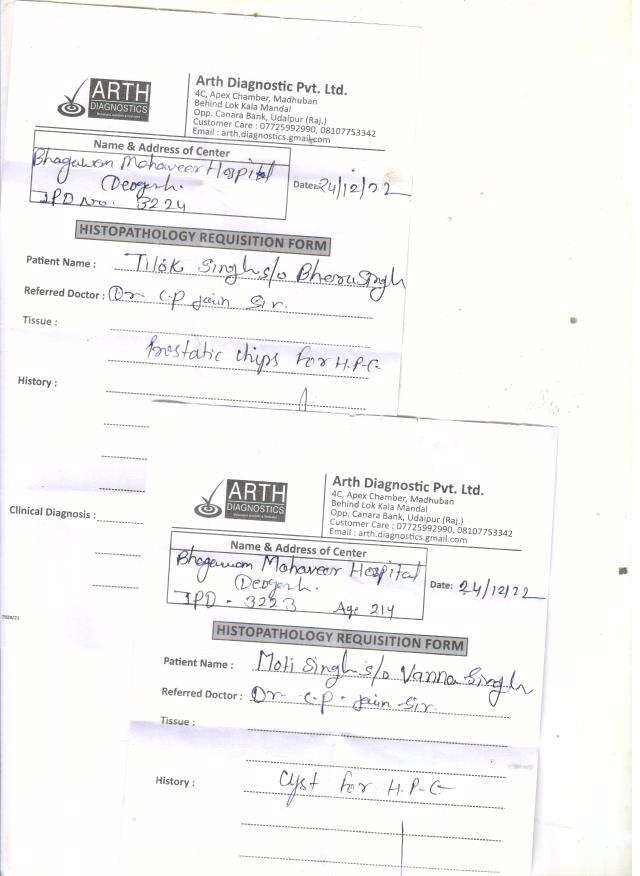 ARTH
DIAGNOSTICS
Arth Diagnostic Pvt. Ltd.
4C, Apex Chamber, Madhuban
Behind Lok Kala Mandal
Opp. Canara Bank, Udaipur (Raj.)
Customer Care : 07725992990, 08107753342
Email : arth.diagnostics.gmail.com
Name & Address of Center
Bhagawan Mahaveer Hospital
Deogarh.
IPD No. 3224
Date: 24/12/22
HISTOPATHOLOGY REQUISITION FORM
Patient Name : Tilok Singh s/o Bheru Singh
Referred Doctor : Dr C.P Jain Sir.
Tissue :
Prostatic chips for H.P.E
History :
Clinical Diagnosis :
7026/21
ARTH
DIAGNOSTICS
Arth Diagnostic Pvt. Ltd.
4C, Apex Chamber, Madhuban
Behind Lok Kala Mandal
Opp. Canara Bank, Udaipur (Raj.)
Customer Care : 07725992990, 08107753342
Email : arth.diagnostics.gmail.com
Name & Address of Center
Bhagawan Mahaveer Hospital
Deogarh.
IPD - 3223 Age
Date: 24/12/22
HISTOPATHOLOGY REQUISITION FORM
Patient Name : Moti Singh s/o Vanna Singh
Referred Doctor : Dr C.P. Jain Sir.
Tissue :
History : Cyst for H.P.E